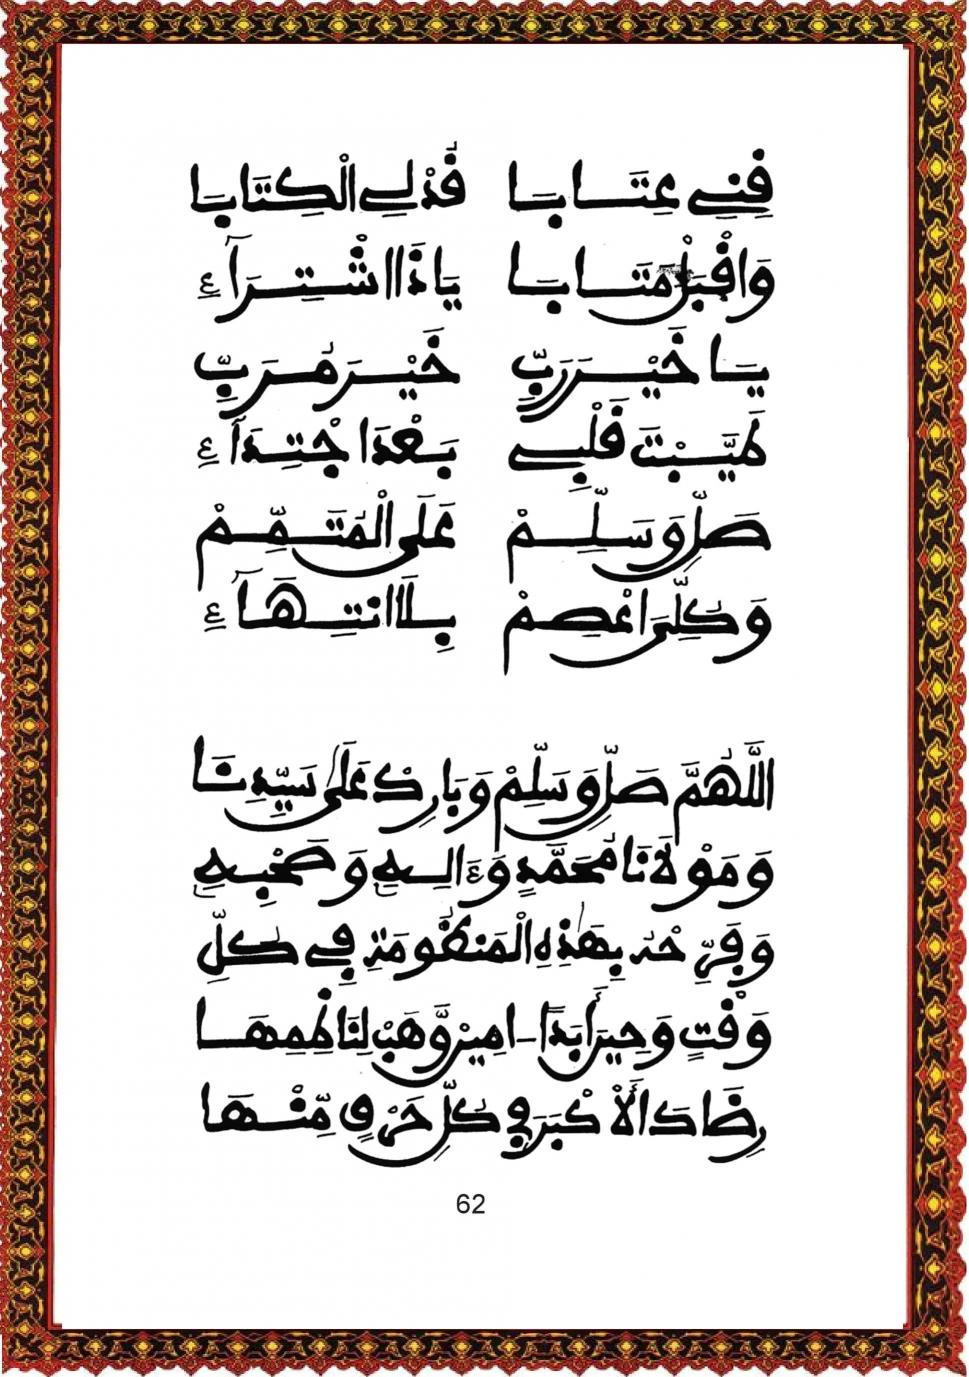 قِنِي عِتَابَا قُدْ لِي الْكِتَابَا
وَاقْبَلْ مَتَابَا يَا ذَا اشْتِرَآءِ
يَا خَيْرَ رَبِّ خَيْرَ مُرَبِّ
طَيَّبْتَ قَلْبِي بَعْدَ اجْتِدَآءِ
صَلِّ وَسَلِّمْ عَلَى الْمُتَمِّمْ
وَكُلِّيَ اعْصِمْ بِلَا انْتِهَآءِ
اللَّهُمَّ صَلِّ وَسَلِّمْ وَبَارِكْ عَلَى سَيِّدِنَا
وَمَوْلَانَا مُحَمَّدٍ وَءَالِهِ وَصَحْبِهِ
وَفَرِّحْهُ بِهَذِهِ الْمَنظُومَةِ فِي كُلِّ
وَقْتٍ وَحِينٍ أَبَدًا ءامِين وَّهَبْ لِنَاظِمِهَا
رِضَاكَ الْأَكْبَرَ فِي كُلِّ حَرْفٍ مِّنْهَا
62